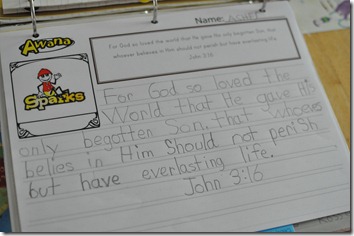 Awana
Name:
For God so loved the world that he gave his only begotten Son, that
whoever believes in Him should not perish but have everlasting life.
John 3:16
Sparks
For God so loved the
World that He gave His
only begotten Son, that whoeves
belies in Him Should not perish
but have everlasting life.
John 3:16